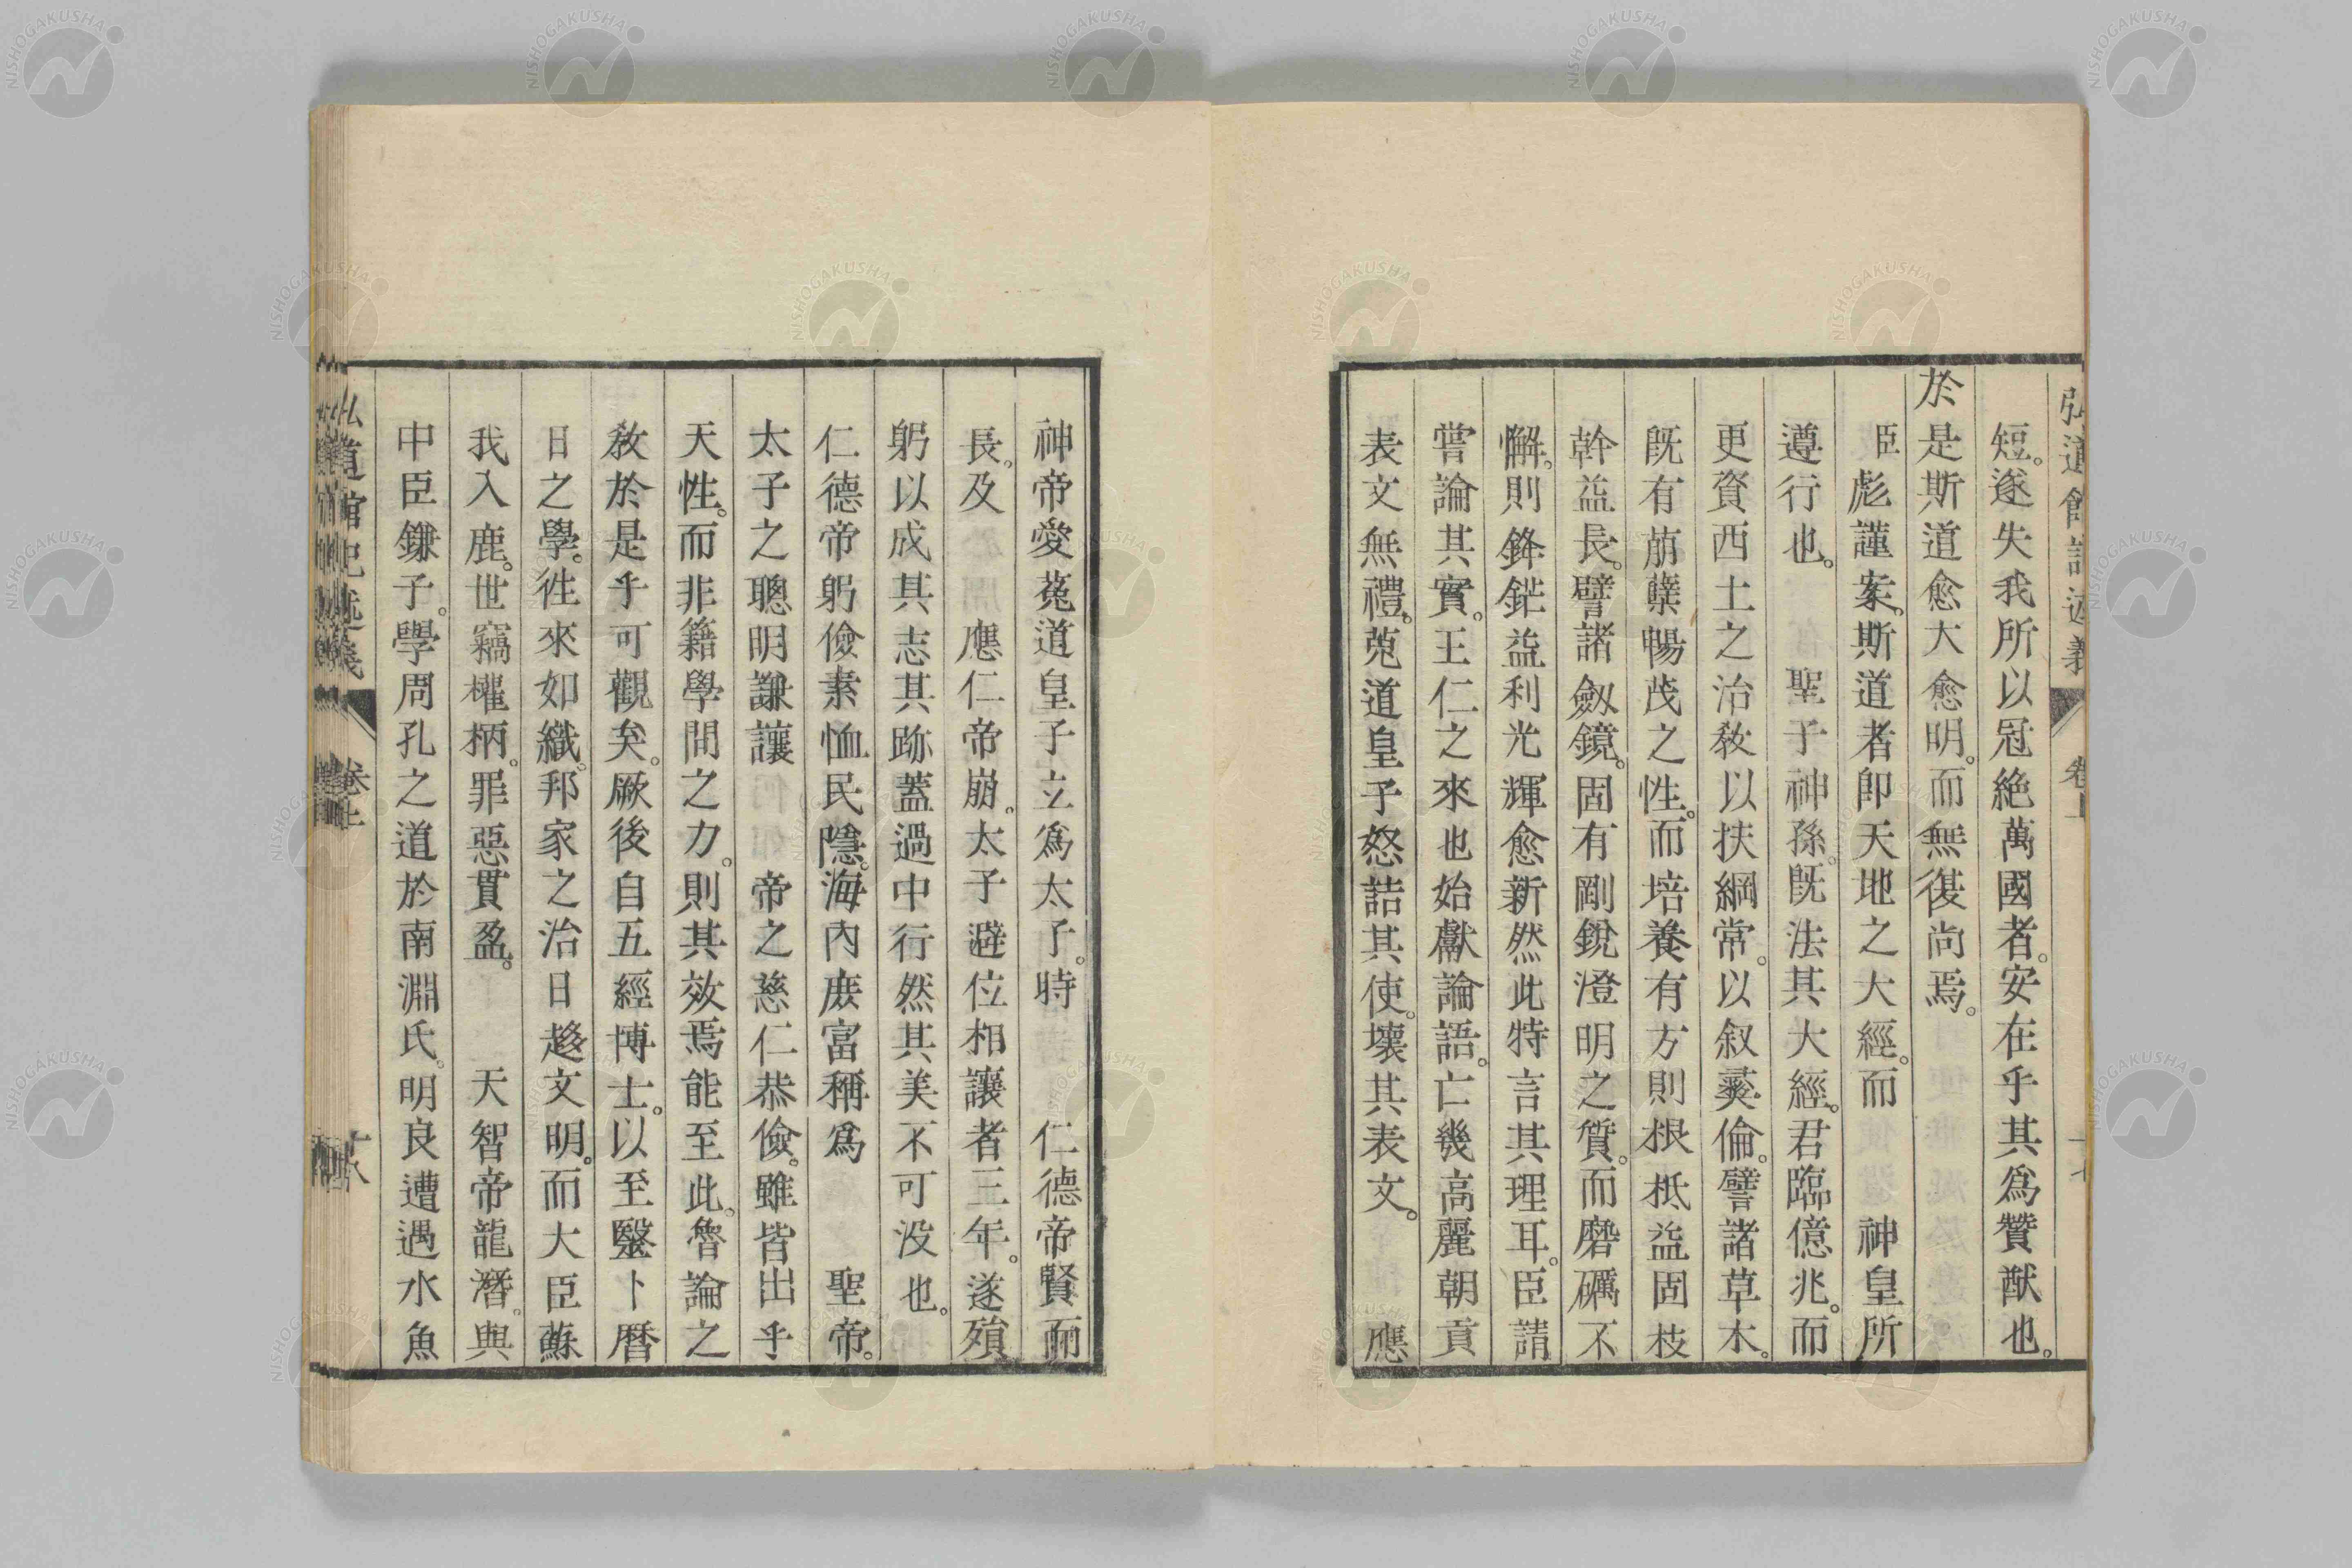 弘道館記述義 卷上
短。遂失我所以冠絶萬國者。安在乎其爲贊猷也。
於是斯道愈大愈明。而無復尚焉。
臣彪謹案。斯道者卽天地之大經。而 神皇所
遵行也。 聖子神孫。旣法其大經。君臨億兆。而
更資西土之治敎以扶綱常。以叙彝倫。譬諸草木。
旣有萠蘖暢茂之性。而培養有方則根柢益固枝
幹益長。譬諸劔鏡。固有剛銳澄明之質。而磨礪不
懈。則鋒鋩益利光輝愈新然此特言其理耳。臣請
嘗論其實。王仁之來也始獻論語。亡幾高麗朝貢
表文無禮。菟道皇子怒詰其使。壞其表文。 應
神帝愛菟道皇子立爲太子。時 仁德帝賢而
長。及 應仁帝崩。太子避位相讓者三年。遂殞
躬以成其志其跡蓋過中行然其美不可没也。
仁德帝躬儉素恤民隱。海內庶富稱爲 聖帝。
太子之聰明謙讓 帝之慈仁恭儉。雖皆出乎
天性。而非籍學問之力。則其效焉能至此。魯論之
敎於是乎可觀矣。厥後自五經博士。以至醫卜曆
日之學。徃來如織。邦家之治日趍文明。而大臣蘇
我入鹿。世竊權柄。罪惡貫盈。 天智帝龍潛。與
中臣鎌子。學周孔之道於南淵氏。明良遭遇水魚
弘道館記述義 卷上